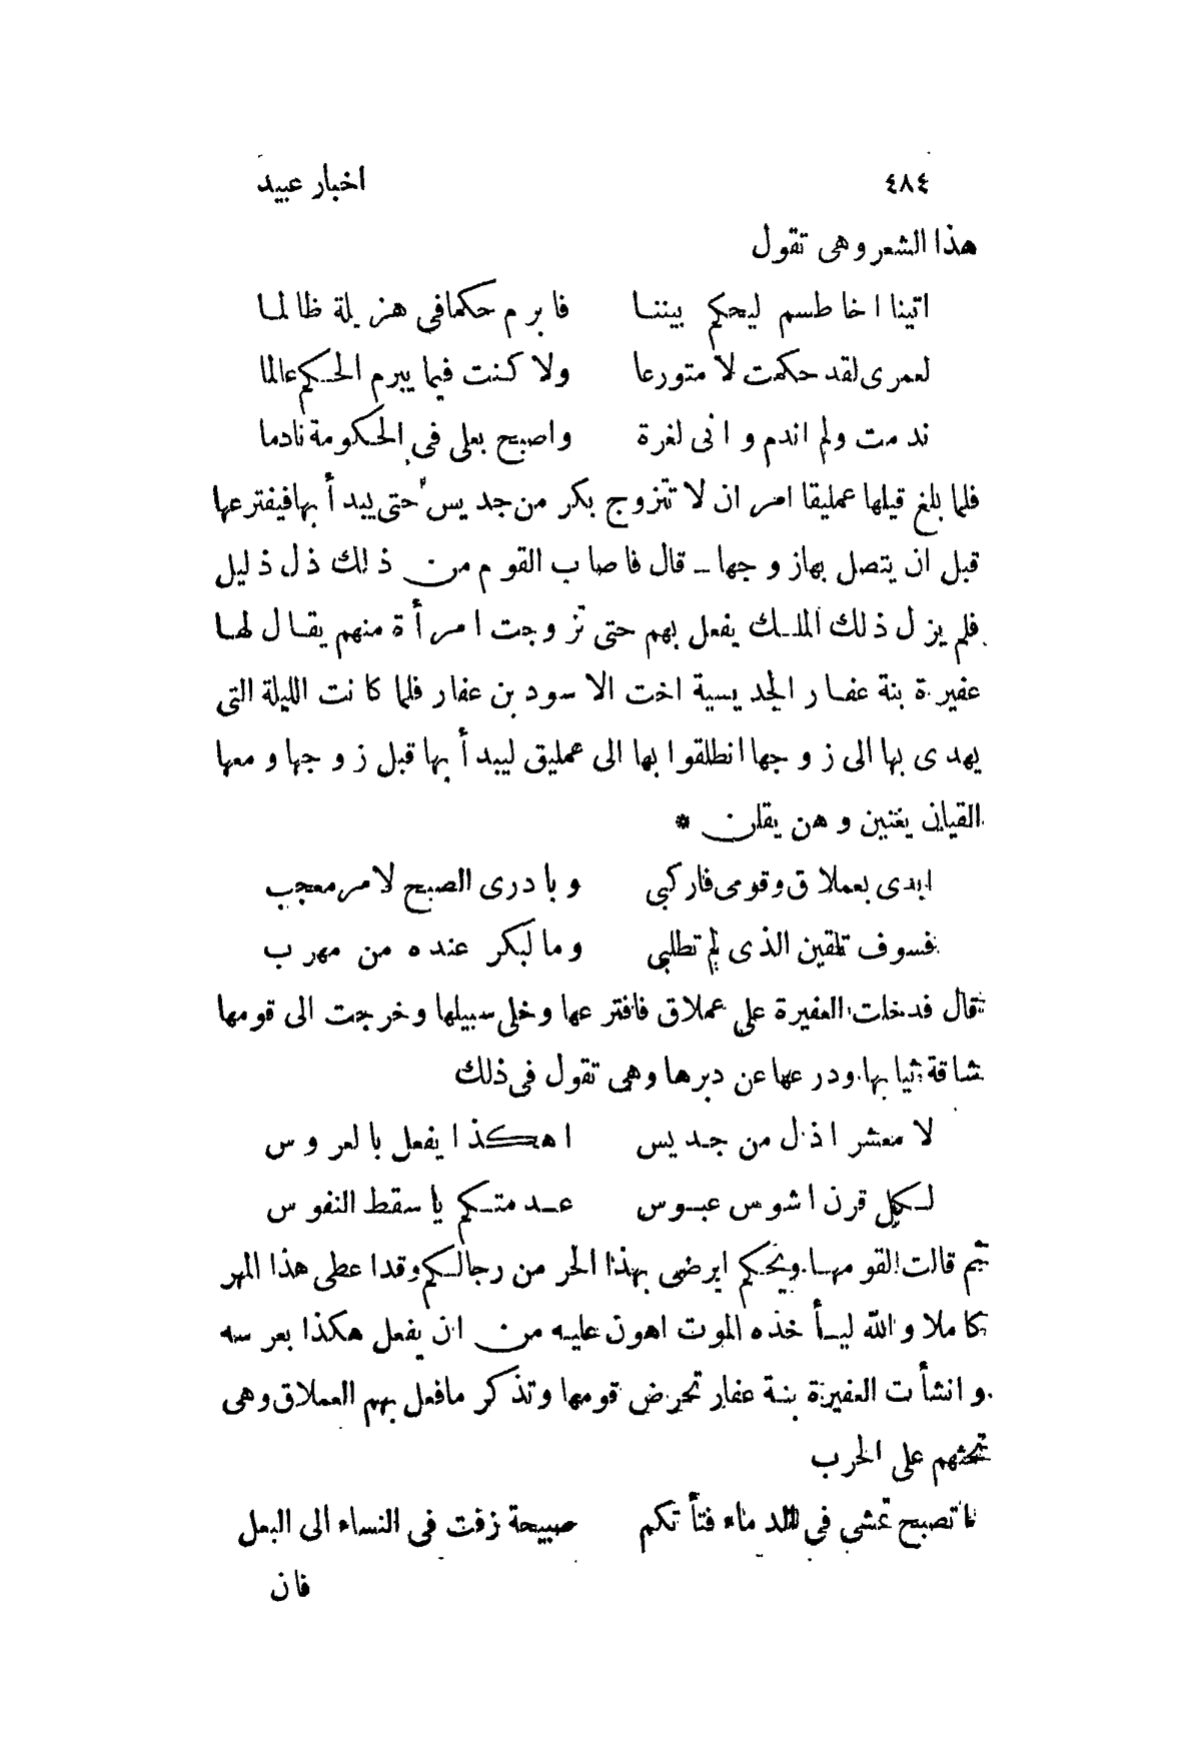 ٤٨٤ اخبار عبيد
هذا الشعر وهى تقول
اتينا اخا طسم ليحكم بيننا فا برم حكما فى هزيلة ظالما
لعمرى لقد حكمت لا متورعا ولا كنت فيما يبرم الحكم عالما
ندمت ولم اندم وانى لغرة واصبح بعلى فى الحكومة نادما
فلما بلغ قيلها عمليقا امر ان لا تتزوج بكر من جديس حتى يبدأ بها فيفترعها
قبل ان يتصل بها زوجها ــ قال فاصاب القوم من ذلك ذل ذليل
فلم يزل ذلك الملك يفعل بهم حتى تزوجت امرأة منهم يقال لها
عفيرة بنة عفار الجديسية اخت الاسود بن عفار فلما كانت الليلة التى
يهدى بها الى زوجها انطلقوا بها الى عمليق ليبدأ بها قبل زوجها ومعها
القيان يغنين وهن يقلن *
ابدى بعملاق وقومى فاركبى وبادرى الصبح لامر معجب
فسوف تلقين الذى لم تطلبى وما لبكر عنده من مهرب
قال فدخلت العفيرة على عملاق فافترعها وخلى سبيلها وخرجت الى قومها
شاقة ثيابها ودرعها عن دبرها وهى تقول فى ذلك
لا معشر اذل من جديس اهكذا يفعل بالعروس
لكل قرن اشوس عبوس عدمتكم يا سقط النفوس
ثم قالت لقومها ويحكم ايرضى بهذا الحر من رجالكم وقد اعطى هذا المهر
كاملا والله ليأخذه الموت اهون عليه من ان يفعل هكذا بعرسه
وانشأت العفيرة بنة عفار تحرض قومها وتذكر ما فعل بهم العملاق وهى
تحثهم على الحرب
تصبح تمشى فى الدماء فتأتكم صبيحة زفت فى النساء الى البعل
فان